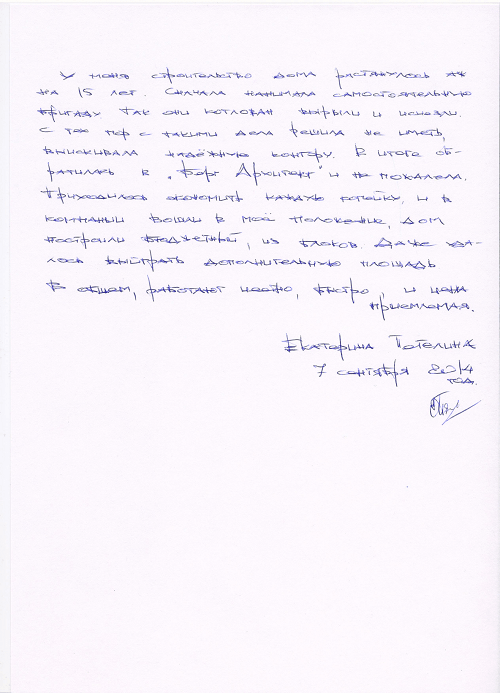 У меня строительство дома растянулось аж
на 15 лет. Сначала нанимала самостоятельную
бригаду так они котлован вырыли и исчезли.
С тех пор с такими дела решила не иметь,
выискивала надёжную контору. В итоге об-
ратилась в „Форт Архитект" и не пожалела.
Приходилось экономить каждую копейку, и в
компании вошли в моё положение, дом
построили бюджетный, из блоков. Даже уда-
лось выйграть дополнительную площадь
В общем, работают честно, быстро, и цена
приемлемая.
Екатерина
7 сентября 2014
год.